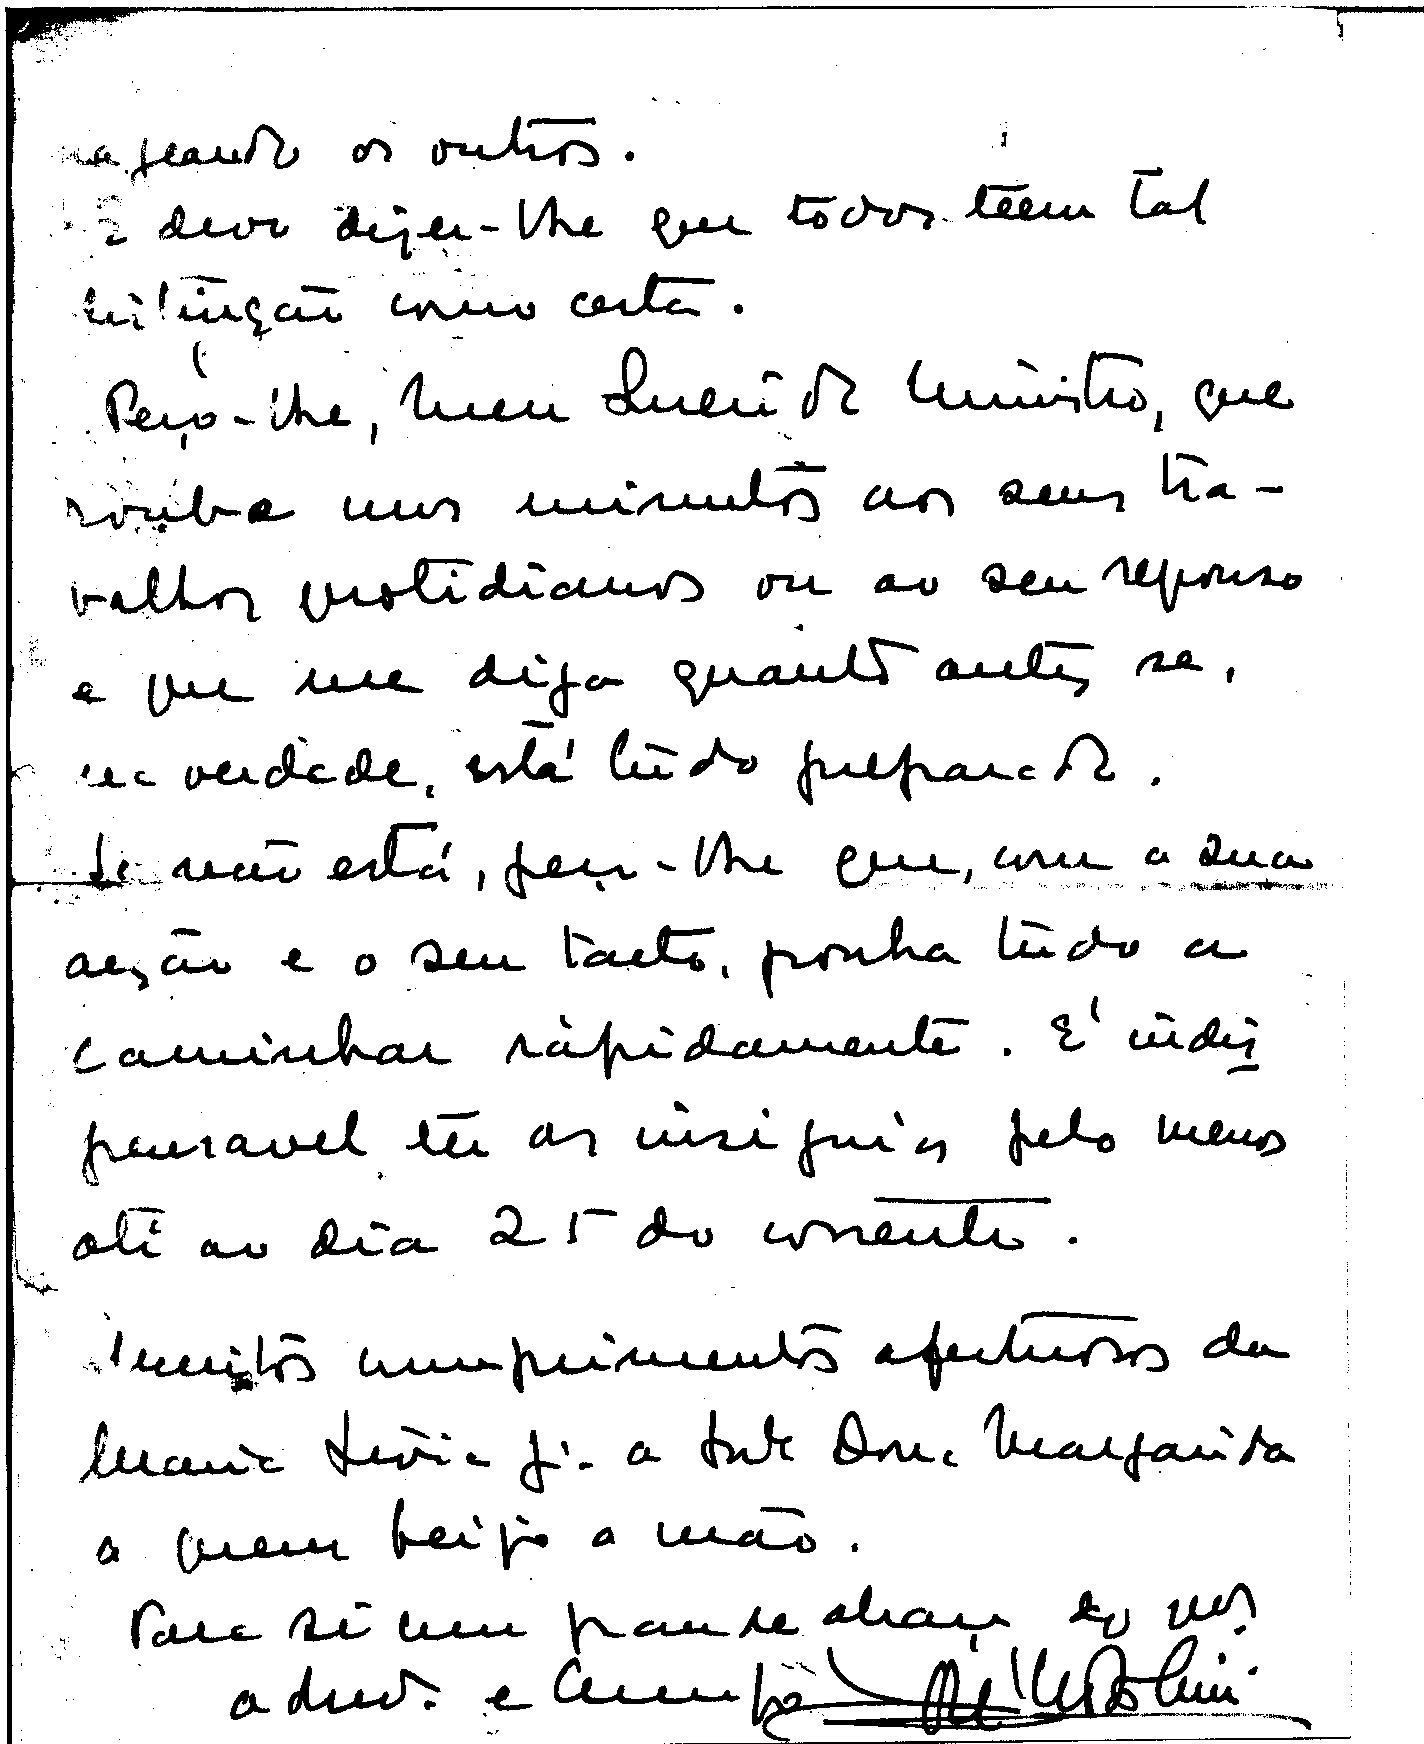 nageando os outros.
E devo dizer-lhe que todos teem tal
distinção como certa.
Peço-lhe, meu Querido Ministro, que
roube uns minutos aos seus tra-
balhos quotidianos ou ao seu repouso
e que me diga quanto antes se,
na verdade, está tudo preparado.
Se não está, peço-lhe que, com a sua
acção e o seu tacto, ponha tudo a
caminhar ràpidamente. É indis
pensavel ter as insignias pelo menos
até ao dia 25 do corrente.
Muitos cumprimentos afectuosos da
Maria Livia pª a Snrª Dona Margarida
a quem beijo a mão.
Para si um grande abraço do vos.
admdr. e